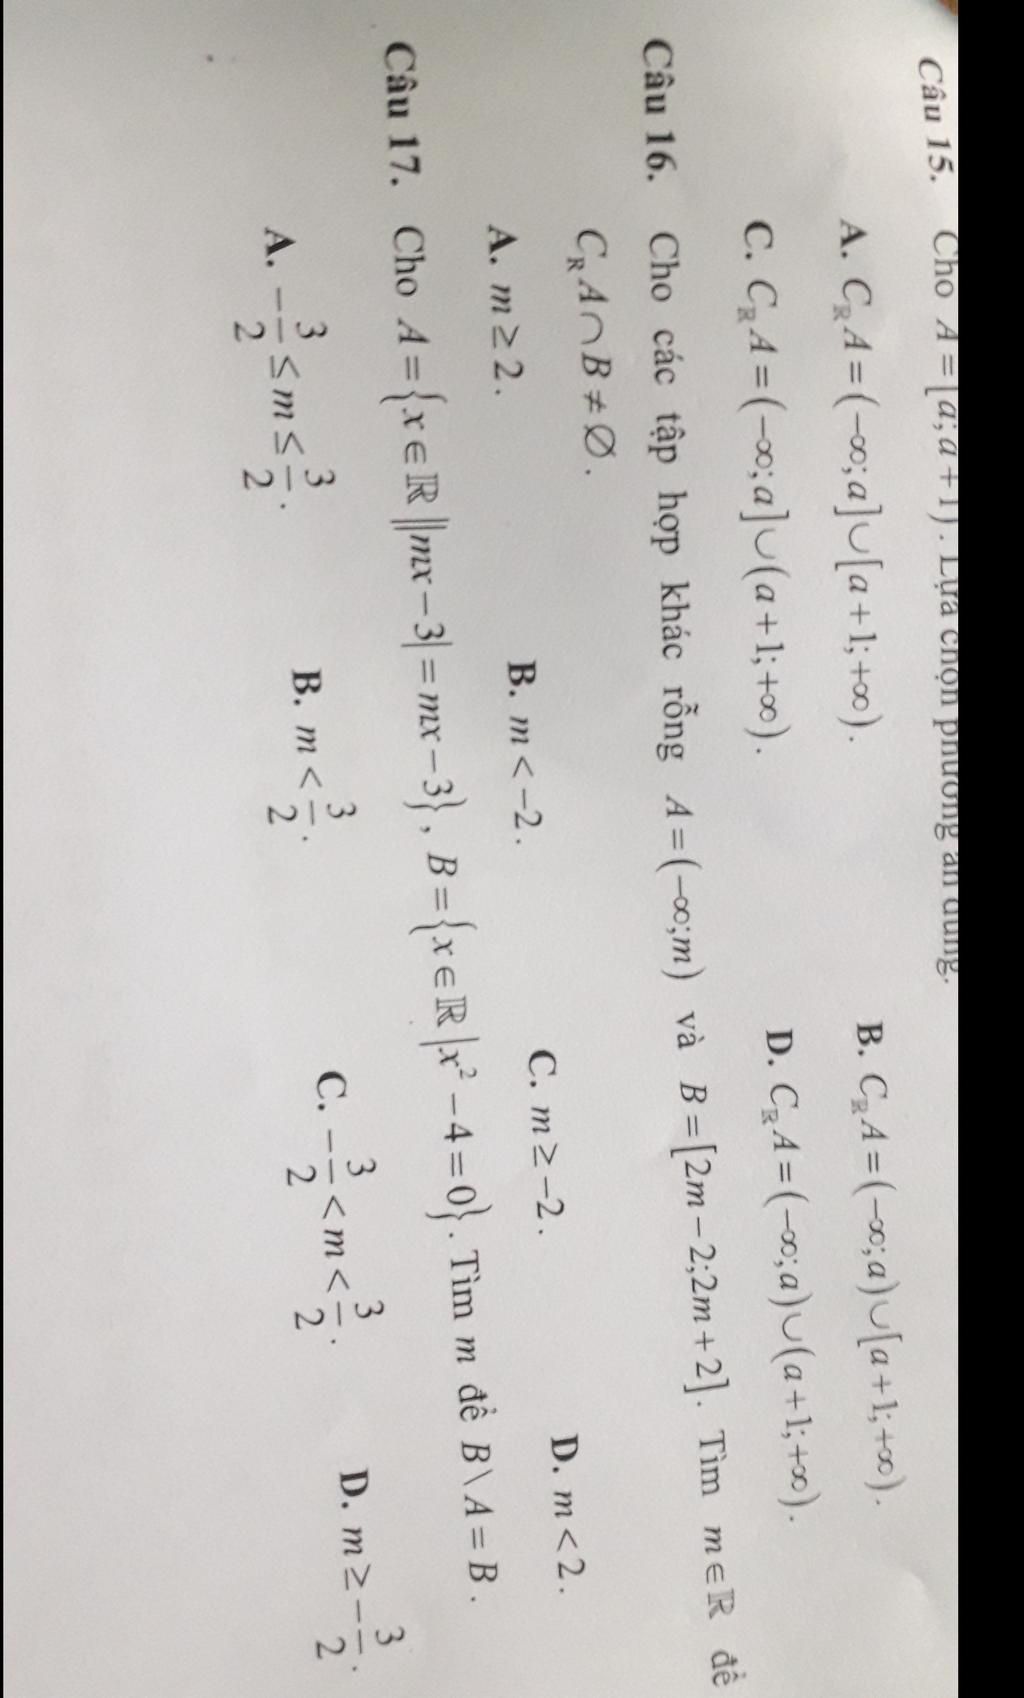 Câu 15. Cho A = [a; a + 1). Lựa chọn phương án đúng.
A. C_ℝ A = (−∞; a] ∪ [a + 1; +∞). B. C_ℝ A = (−∞; a) ∪ [a + 1; +∞).
C. C_ℝ A = (−∞; a] ∪ (a + 1; +∞). D. C_ℝ A = (−∞; a) ∪ (a + 1; +∞).
Câu 16. Cho các tập hợp khác rỗng A = (−∞; m) và B = [2m − 2; 2m + 2]. Tìm m ∈ ℝ để
C_ℝ A ∩ B ≠ ∅.
A. m ≥ 2. B. m < −2. C. m ≥ −2. D. m < 2.
Câu 17. Cho A = {x ∈ ℝ ||mx − 3| = mx − 3}, B = {x ∈ ℝ | x² − 4 = 0}. Tìm m để B \ A = B.
A. −3/2 ≤ m ≤ 3/2. B. m < 3/2. C. −3/2 < m < 3/2. D. m ≥ −3/2.